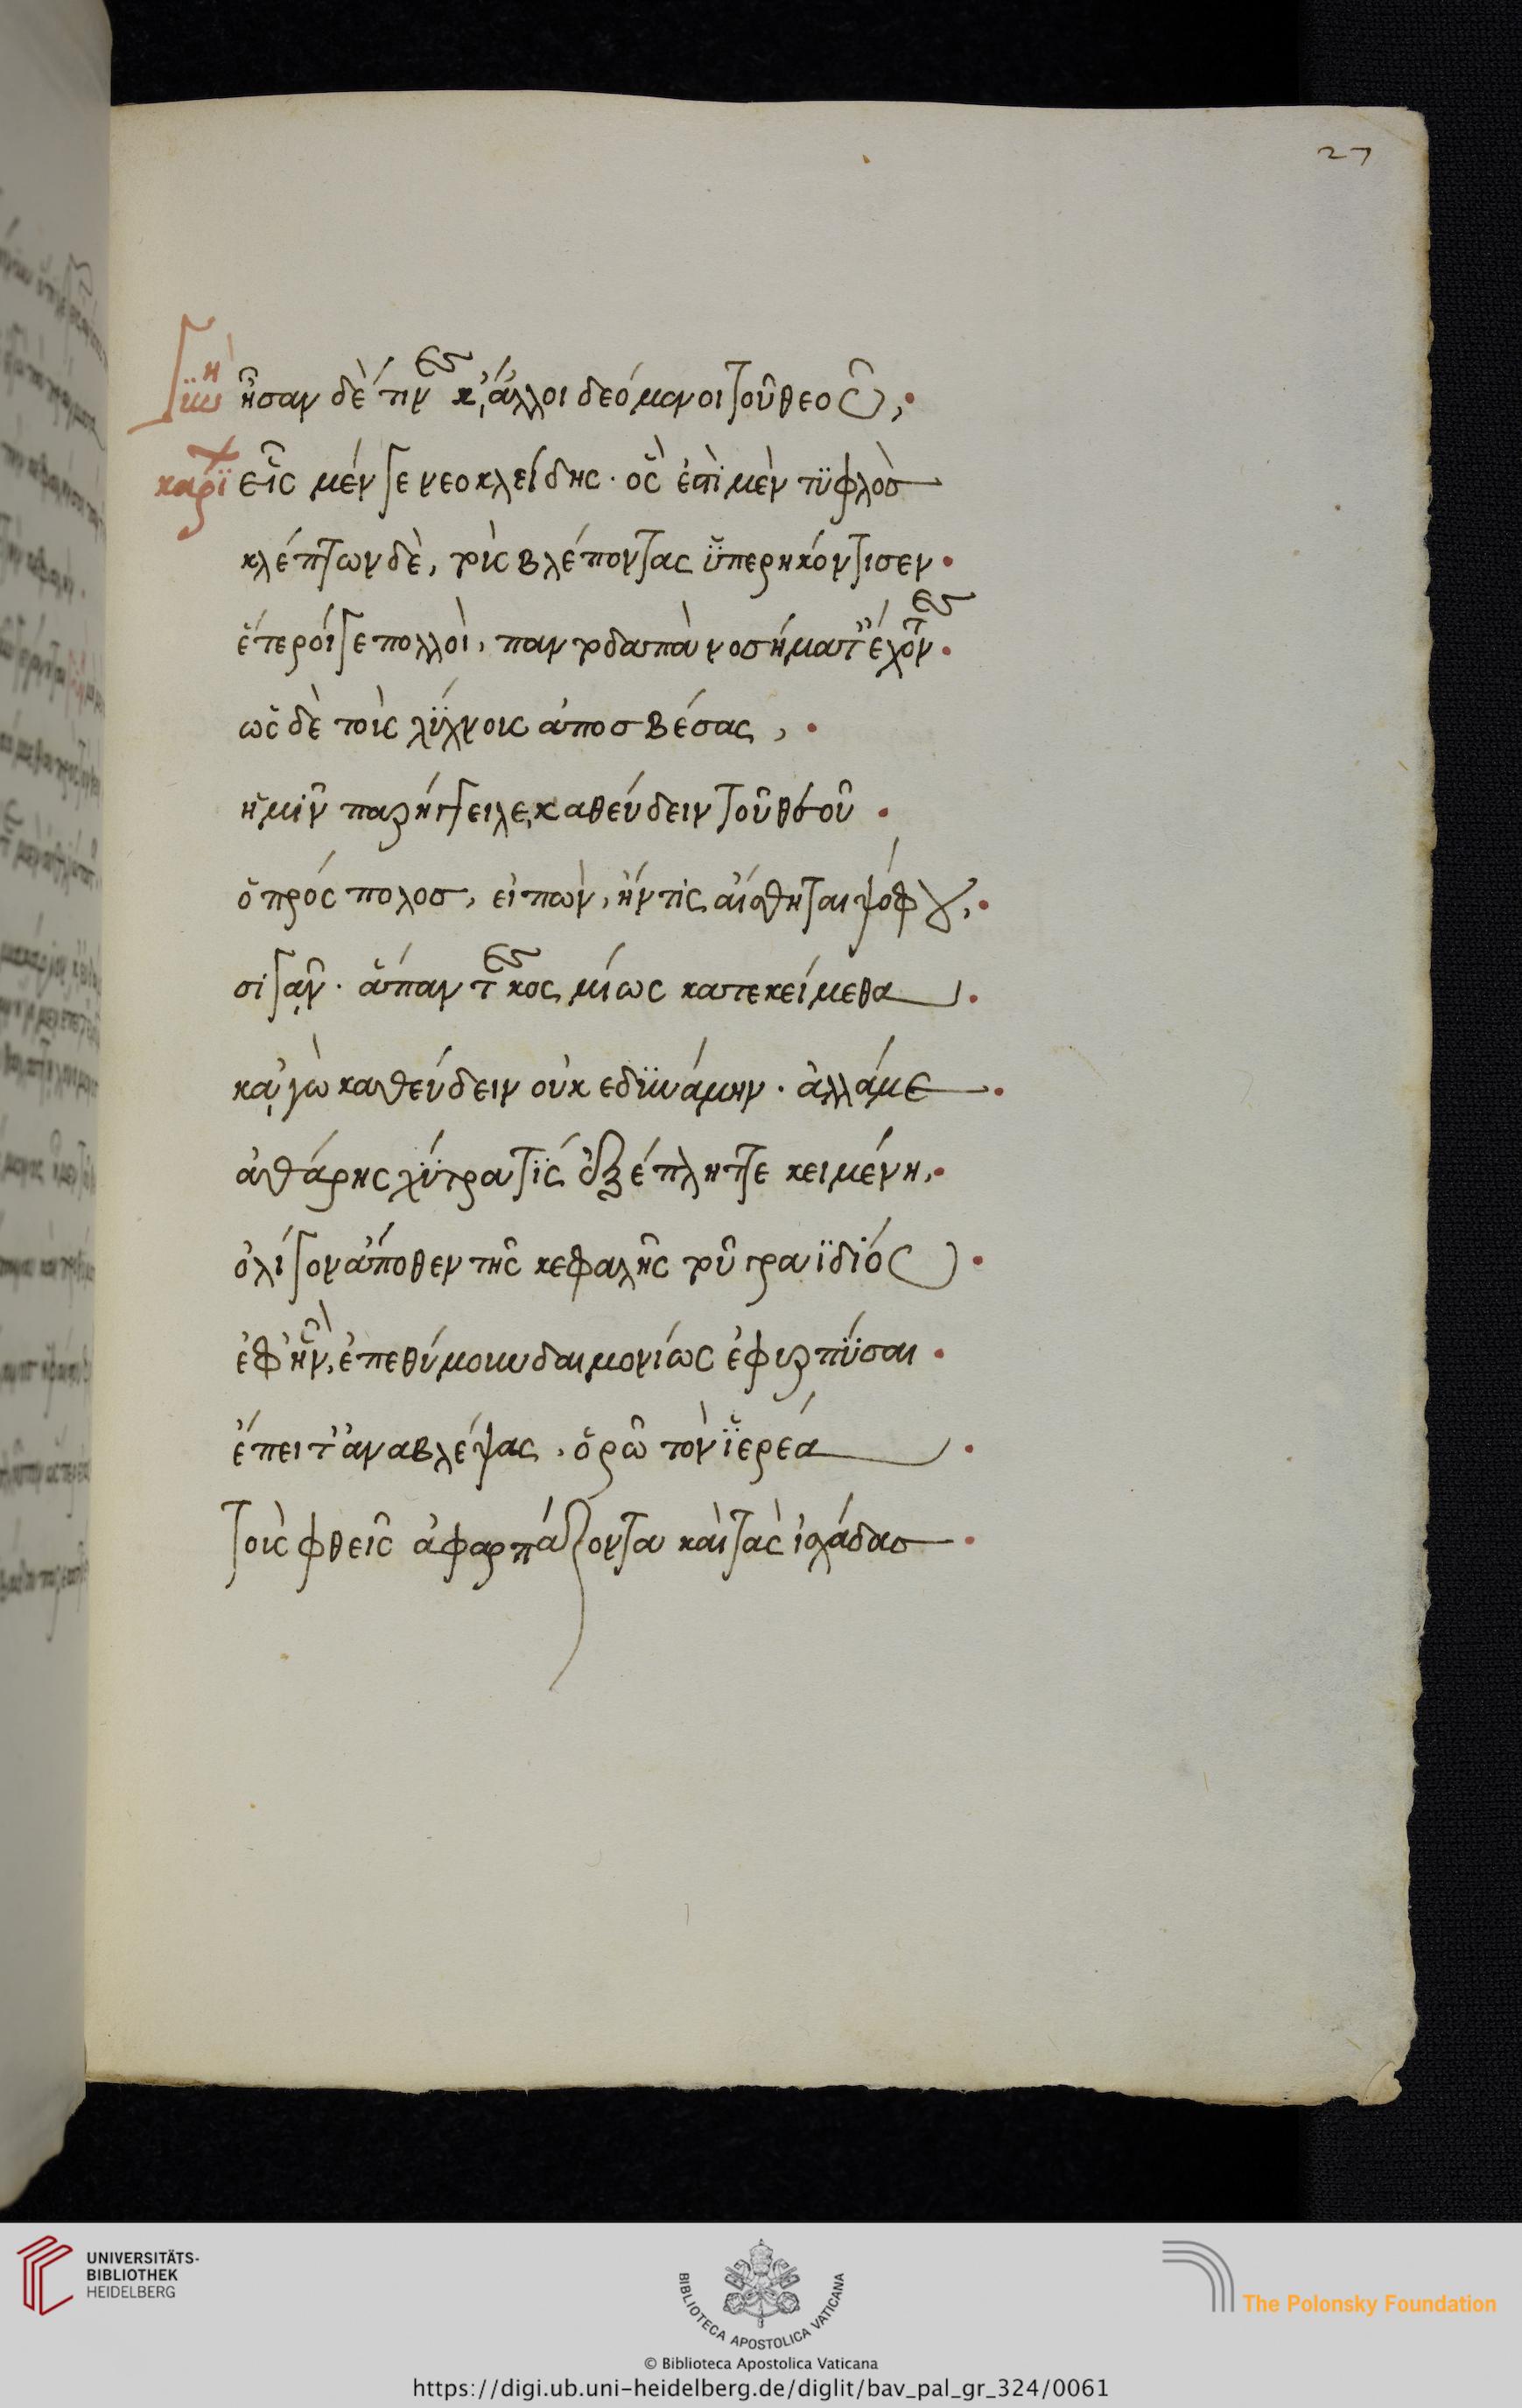 27
γυνὴ ἦσαν δέ τινες κἄλλοι δεόμενοι τοῦ θεοῦ,
καρί εἷς μέν γε νεοκλείδης· ὅς ἐστι μὲν τϋφλὸσ
κλέπτων δὲ, τοὺς βλέποντας ὕπερηκόντισεν·
ἕτεροί τε πολλοὶ, παντοδαπὰ νοσήματ' ἔχοντες·
ὡς δὲ τοὺς λύχνους ἀποσβέσας,
ἡμῖν παρήγγειλε καθεύδειν τοῦ θεοῦ
ὁ πρόσπολοσ, εἰπὼν, ἤν τις αἴσθηται ψόφου,
σιγᾶν· ἅπαντες κοσμίως κατεκείμεθα
κἀγὼ καθεύδειν οὐκ εδϋνάμην· ἀλλά με
ἀθάρης χύτρα τίς ἐξέπληττε κειμένη,
ὀλίγον ἄποθεν τῆς κεφαλῆς τοῦ γραϊδίου
ἐφ' ἣν, ἐπεθύμουν δαιμονίως ἐφερπύσαι
ἔπειτ' ἀναβλέψας, ὁρῶ τὸν ἱερέα
τοὺς φθεῖς ἀφαρπάζοντα καὶ τὰς ἰσχάδασ
UNIVERSITÄTS-
BIBLIOTHEK
HEIDELBERG
BIBLIOTECA APOSTOLICA VATICANA
The Polonsky Foundation
© Biblioteca Apostolica Vaticana
https://digi.ub.uni-heidelberg.de/diglit/bav_pal_gr_324/0061